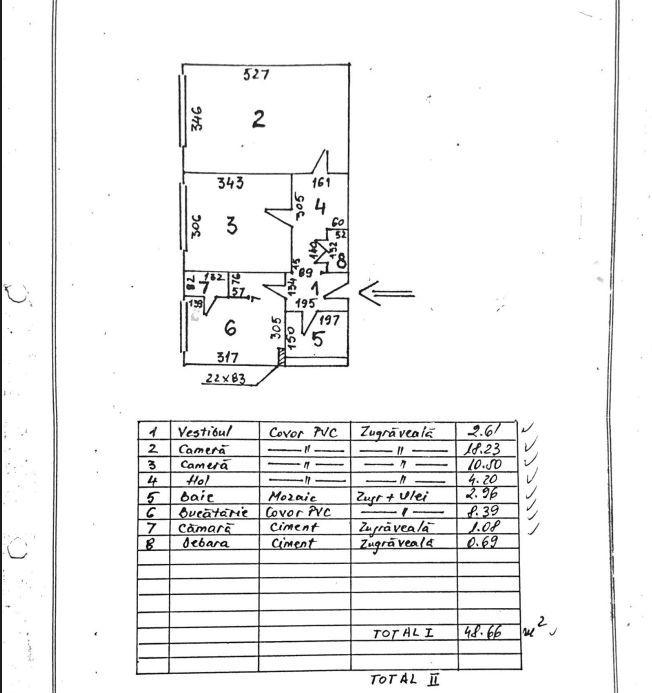 527
346
2
343
161
305
4
306
3
60
52
140
132
8
15
89
82
132
76
7
57
134
1
195
138
6
305
150
197
5
317
22x83
1 Vestibul Covor PVC Zugrăveală 2.61
2 Cameră —〃— —〃— 18.23
3 Cameră —〃— —〃— 10.50
4 Hol —〃— —〃— 4.20
5 Baie Mozaic Zugr + Ulei 2.96
6 Bucătărie Covor PVC —〃— 8.39
7 Cămară Ciment Zugrăveală 1.08
8 Debara Ciment Zugrăveală 0.69
TOTAL I 48.66 m²
TOTAL II